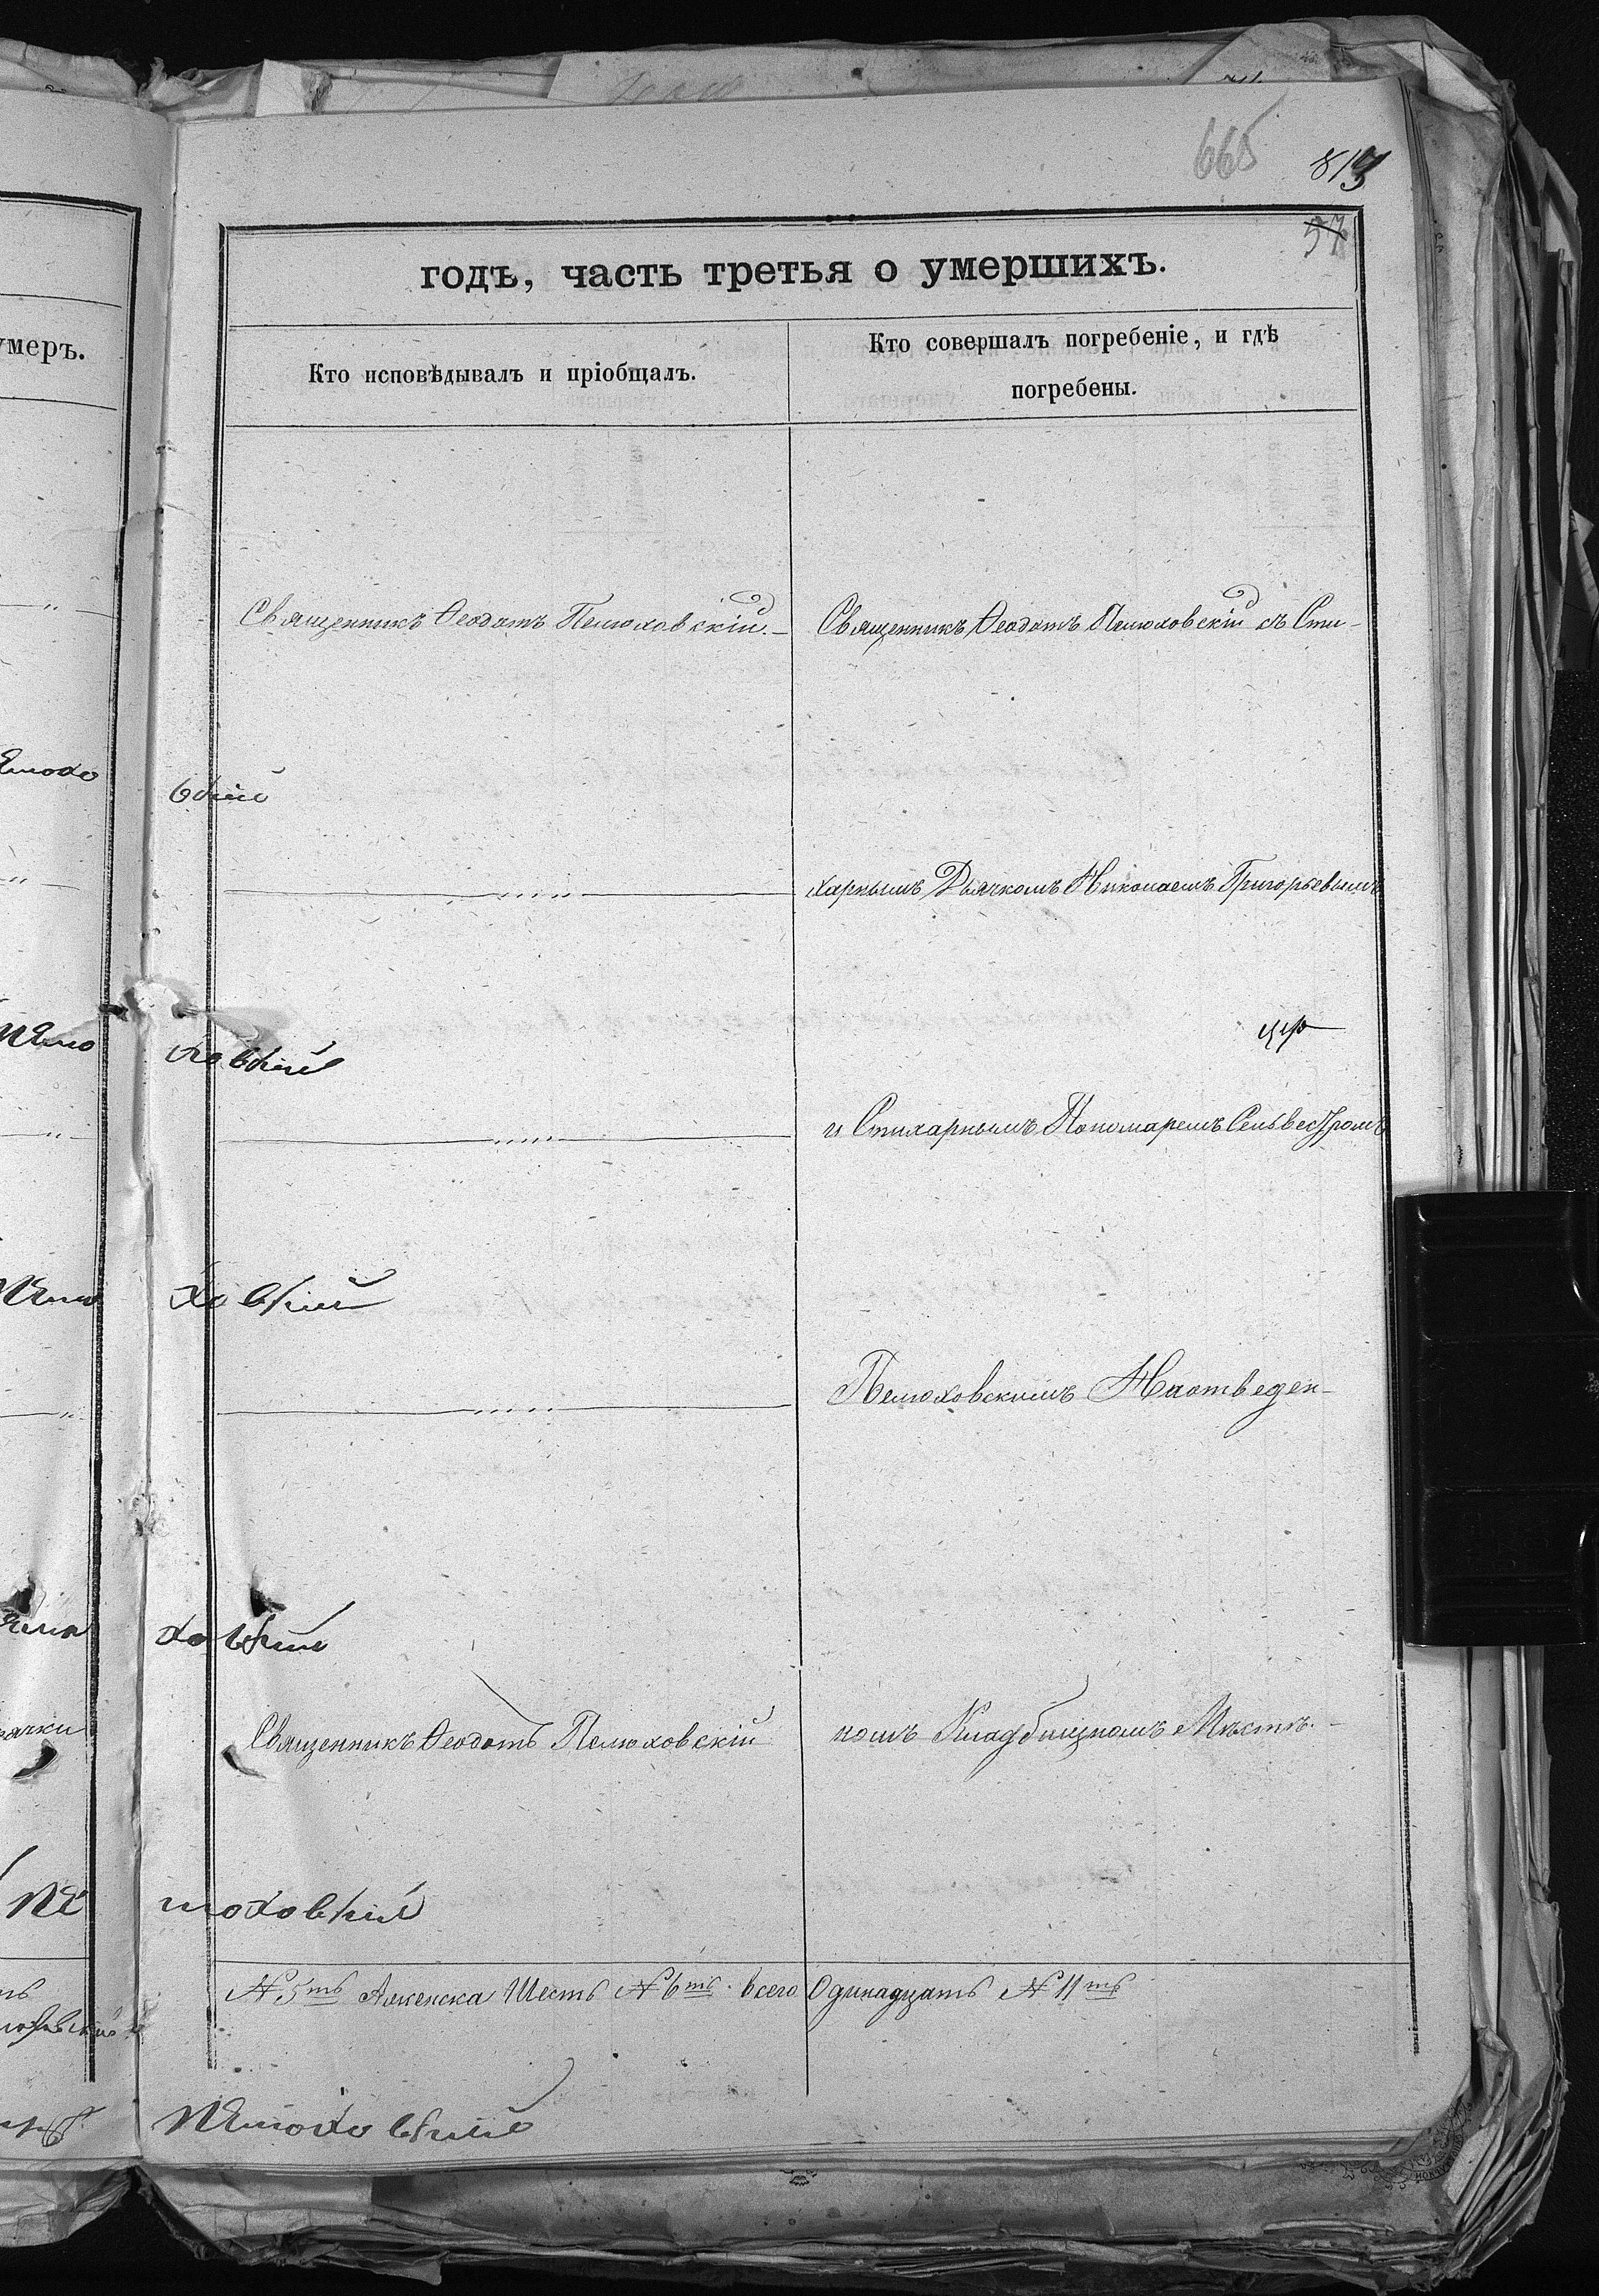 665
813
57
годъ, часть третья о умершихъ.
умеръ.
Кто исповѣдывалъ и пріобщалъ.
Кто совершалъ погребеніе, и гдѣ
погребены.
Священникъ Ѳеодотъ Пелюховскій. –
Священникъ Ѳеодотъ Пелюховскій съ Сти-
вскій
харнымъ Дьячкомъ Николаемъ Григорьевымъ
ховскій
и Стихарнымъ Пономаремъ Сельвестромъ
ховскій
Пелюховскимъ На отведен-
ховскій
Священникъ Ѳеодотъ Пелюховскій
номъ Кладбищномъ Мѣстѣ. –
Пе люховскій
№ 5ть А женска Шесть № 6ть. всего Одинадцать № 11ть
Пелюховскій